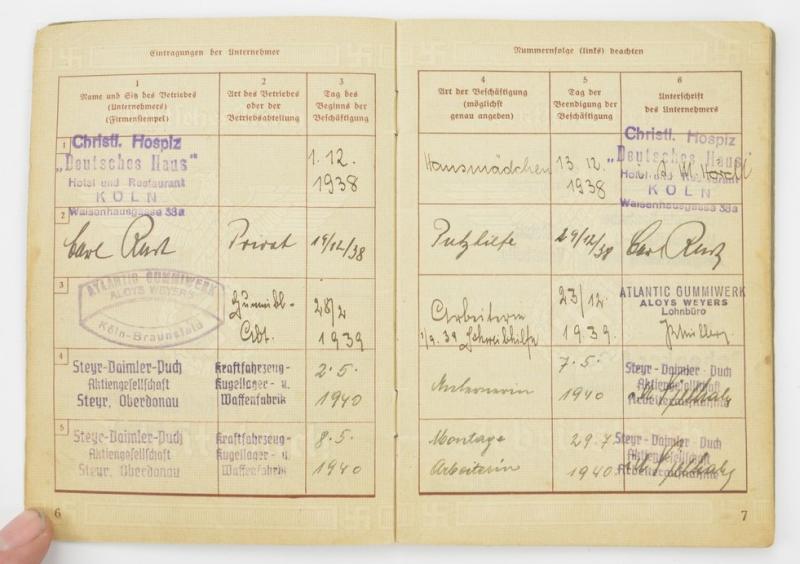 Eintragungen der Unternehmer
1
Name und Sitz des Betriebes
(Unternehmers)
(Firmenstempel)
2
Art des Betriebes
oder der
Betriebsabteilung
3
Tag des
Beginns der
Beschäftigung
1
Christl. Hospiz
„Deutsches Haus"
Hotel und Restaurant
KÖLN
Waisenhausgasse 38a
1.12.
1938
2
Carl
Privat
14/12/38
3
ATLANTIC GUMMIWERK
ALOYS WEYERS
Köln-Braunsfeld
28/2
1939
4
Steyr-Daimler-Puch
Aktiengesellschaft
Steyr, Oberdonau
Kraftfahrzeug-
Kugellager- u.
Waffenfabrik
2.5.
1940
5
Steyr-Daimler-Puch
Aktiengesellschaft
Steyr, Oberdonau
Kraftfahrzeug-
Kugellager- u.
Waffenfabrik
8.5.
1940
6
Nummernfolge (links) beachten
4
Art der Beschäftigung
(möglichst
genau angeben)
5
Tag der
Beendigung der
Beschäftigung
6
Unterschrift
des Unternehmers
Hausmädchen
13.12.
1938
Christl. Hospiz
„Deutsches Haus"
Hotel und Restaurant
KÖLN
Waisenhausgasse 38a
Putzhilfe
24/12/38
Carl
Arbeiterin
Schreibhilfe
23/12
1939.
ATLANTIC GUMMIWERK
ALOYS WEYERS
Lohnbüro
7.5.
1940
Steyr-Daimler-Puch
Aktiengesellschaft
Arbeiteraufnahme
Montage
Arbeiterin
29.7.
1940
Steyr-Daimler-Puch
Aktiengesellschaft
Arbeiteraufnahme
7